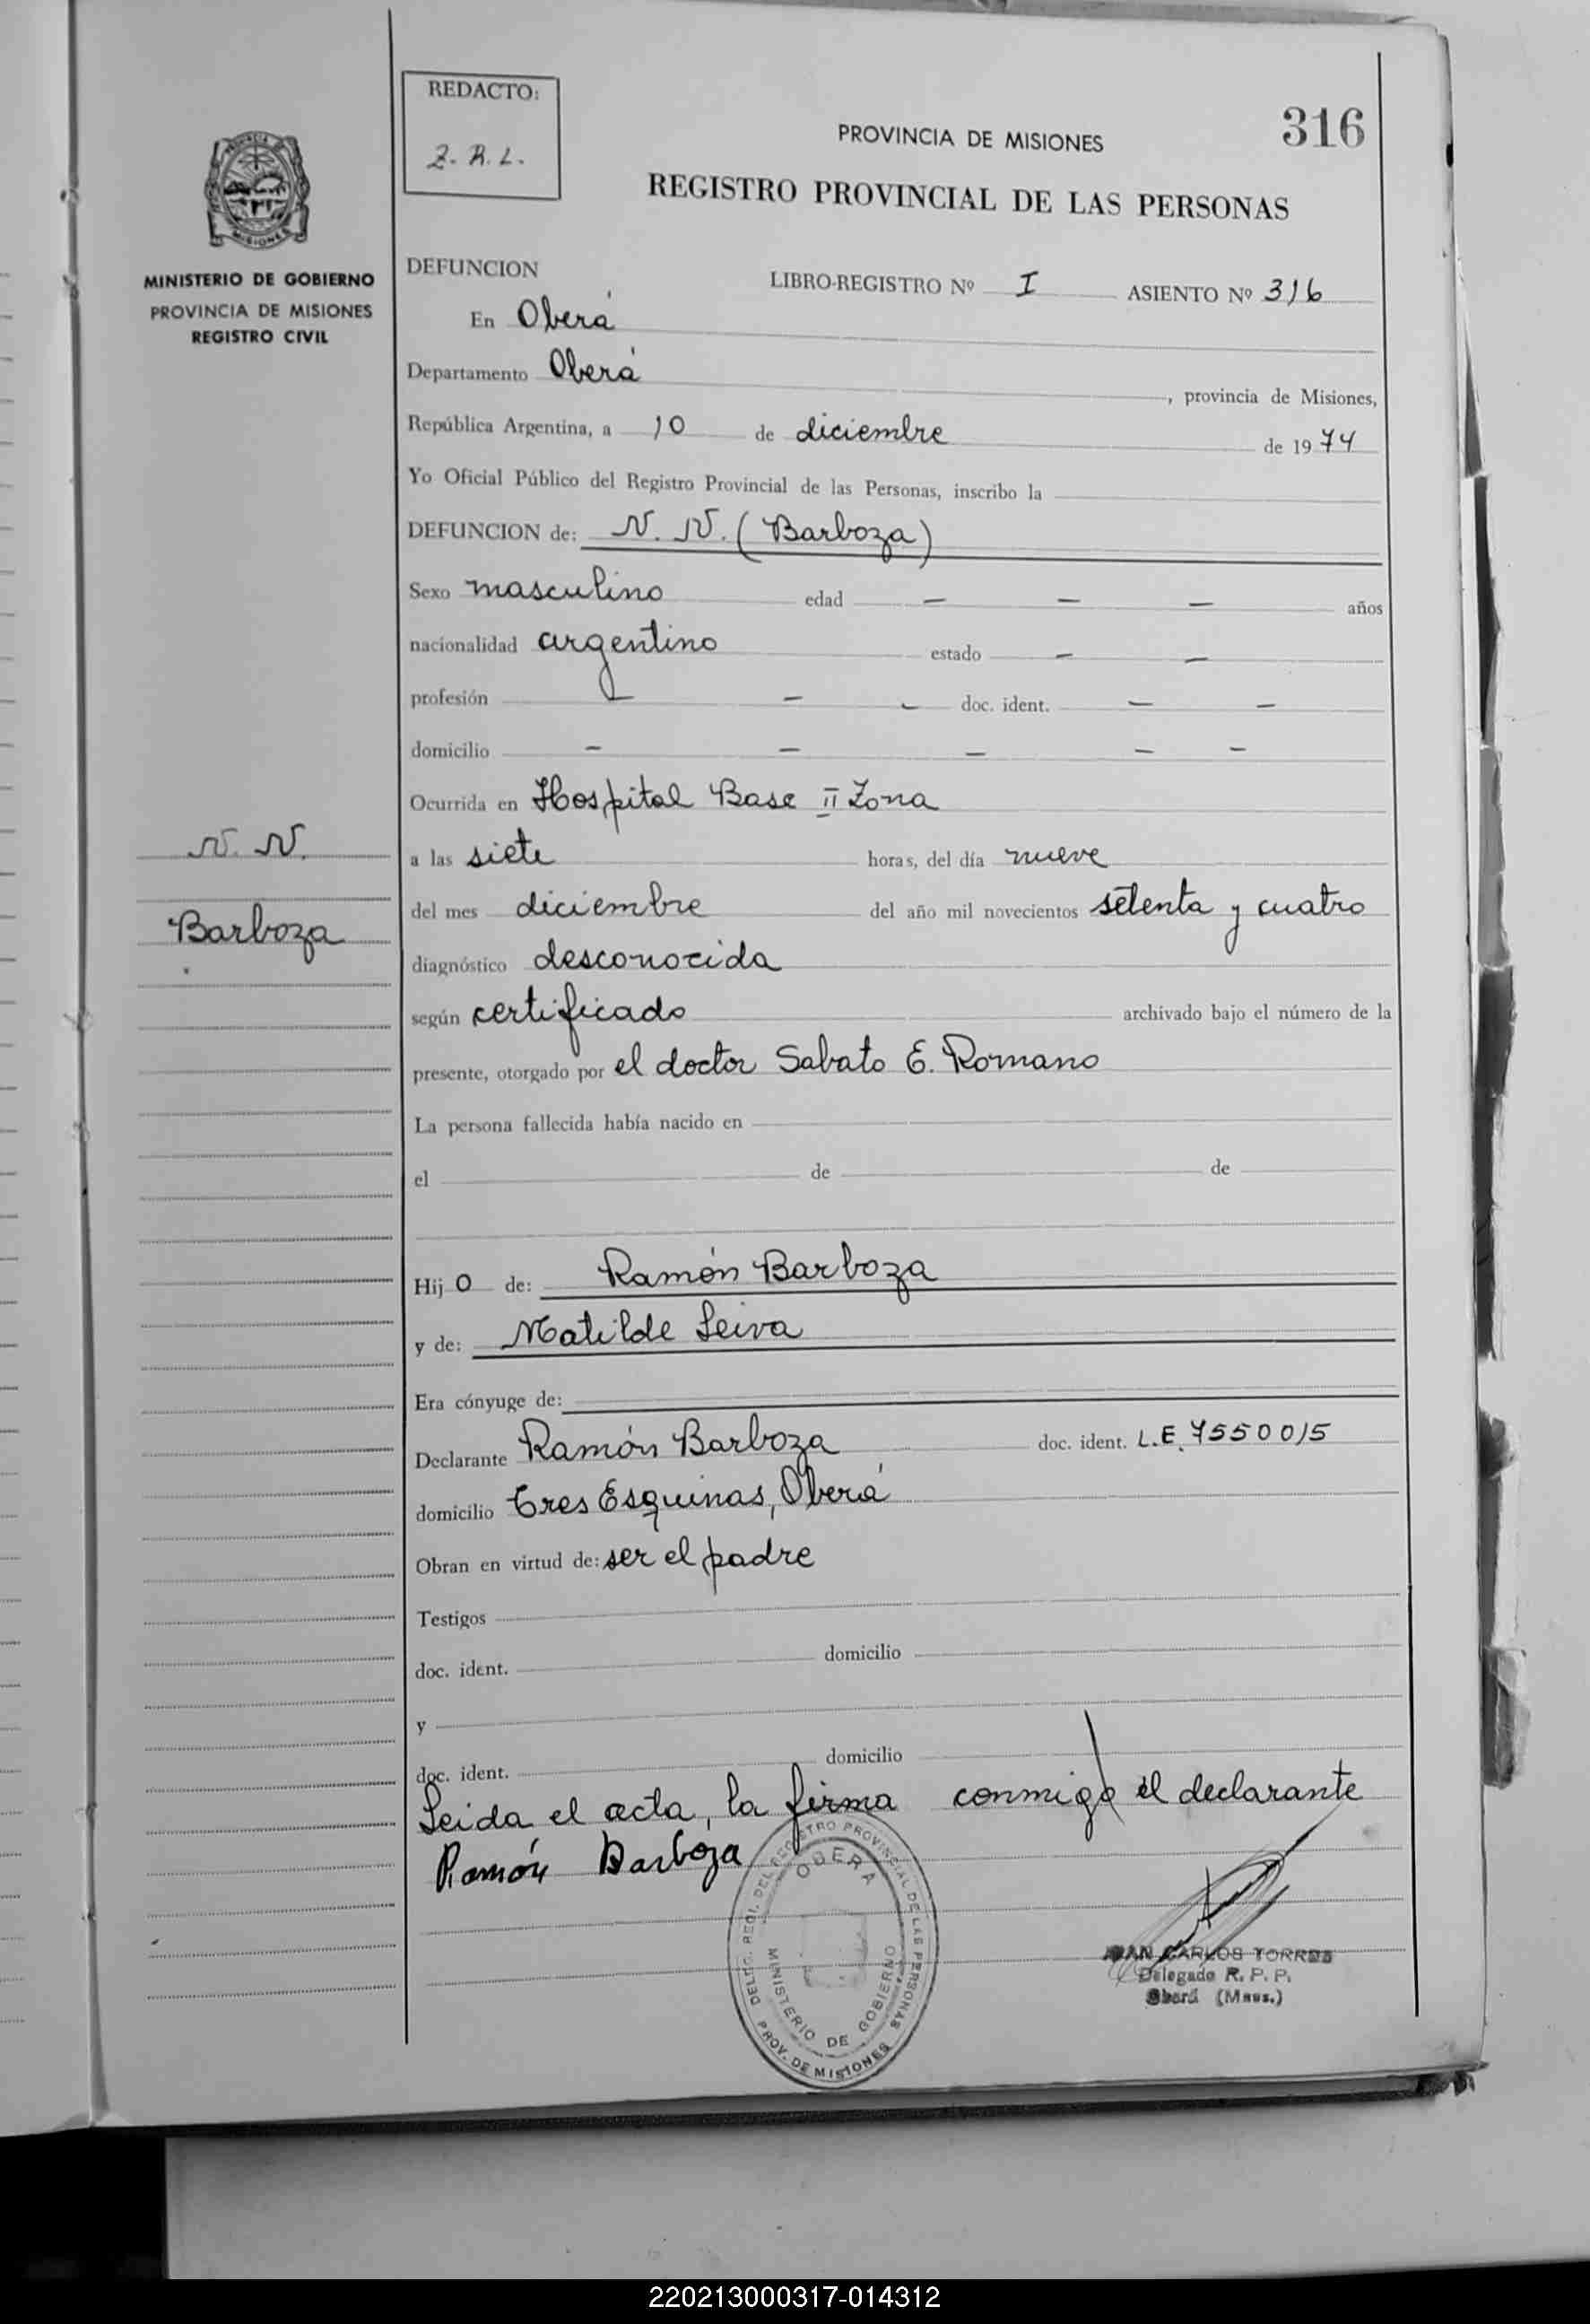 REDACTO:
Z. R. L.
316
PROVINCIA DE MISIONES
REGISTRO PROVINCIAL DE LAS PERSONAS
MISIONES
MINISTERIO DE GOBIERNO
PROVINCIA DE MISIONES
REGISTRO CIVIL
DEFUNCION
LIBRO-REGISTRO Nº I ASIENTO Nº 316
En Oberá
Departamento Oberá, provincia de Misiones,
República Argentina, a 10 de diciembre de 1974
Yo Oficial Público del Registro Provincial de las Personas, inscribo la
DEFUNCION de: N. N. (Barboza)
Sexo masculino edad — — — años
nacionalidad argentino estado — —
profesión — — — doc. ident. — —
domicilio — — — — —
Ocurrida en Hospital Base II Zona
N. N.
a las siete horas, del día nueve
del mes diciembre del año mil novecientos setenta y cuatro
Barboza
diagnóstico desconocida
según certificado archivado bajo el número de la
presente, otorgado por el doctor Sabato E. Romano
La persona fallecida había nacido en
el de de
Hijo de: Ramón Barboza
y de: Matilde Leiva
Era cónyuge de:
Declarante Ramón Barboza doc. ident. L.E. 7550015
domicilio Tres Esquinas, Oberá
Obran en virtud de: ser el padre
Testigos
doc. ident. domicilio
y
doc. ident. domicilio
Leida el acta, la firma conmigo el declarante
Ramón Barboza
DELEG. REGI. DEL REGISTRO PROVINCIAL DE LAS PERSONAS
OBERA
MINISTERIO DE GOBIERNO
PROV. DE MISIONES
JUAN CARLOS TORRES
Delegado R. P. P.
Oberá (Mnes.)
220213000317-014312